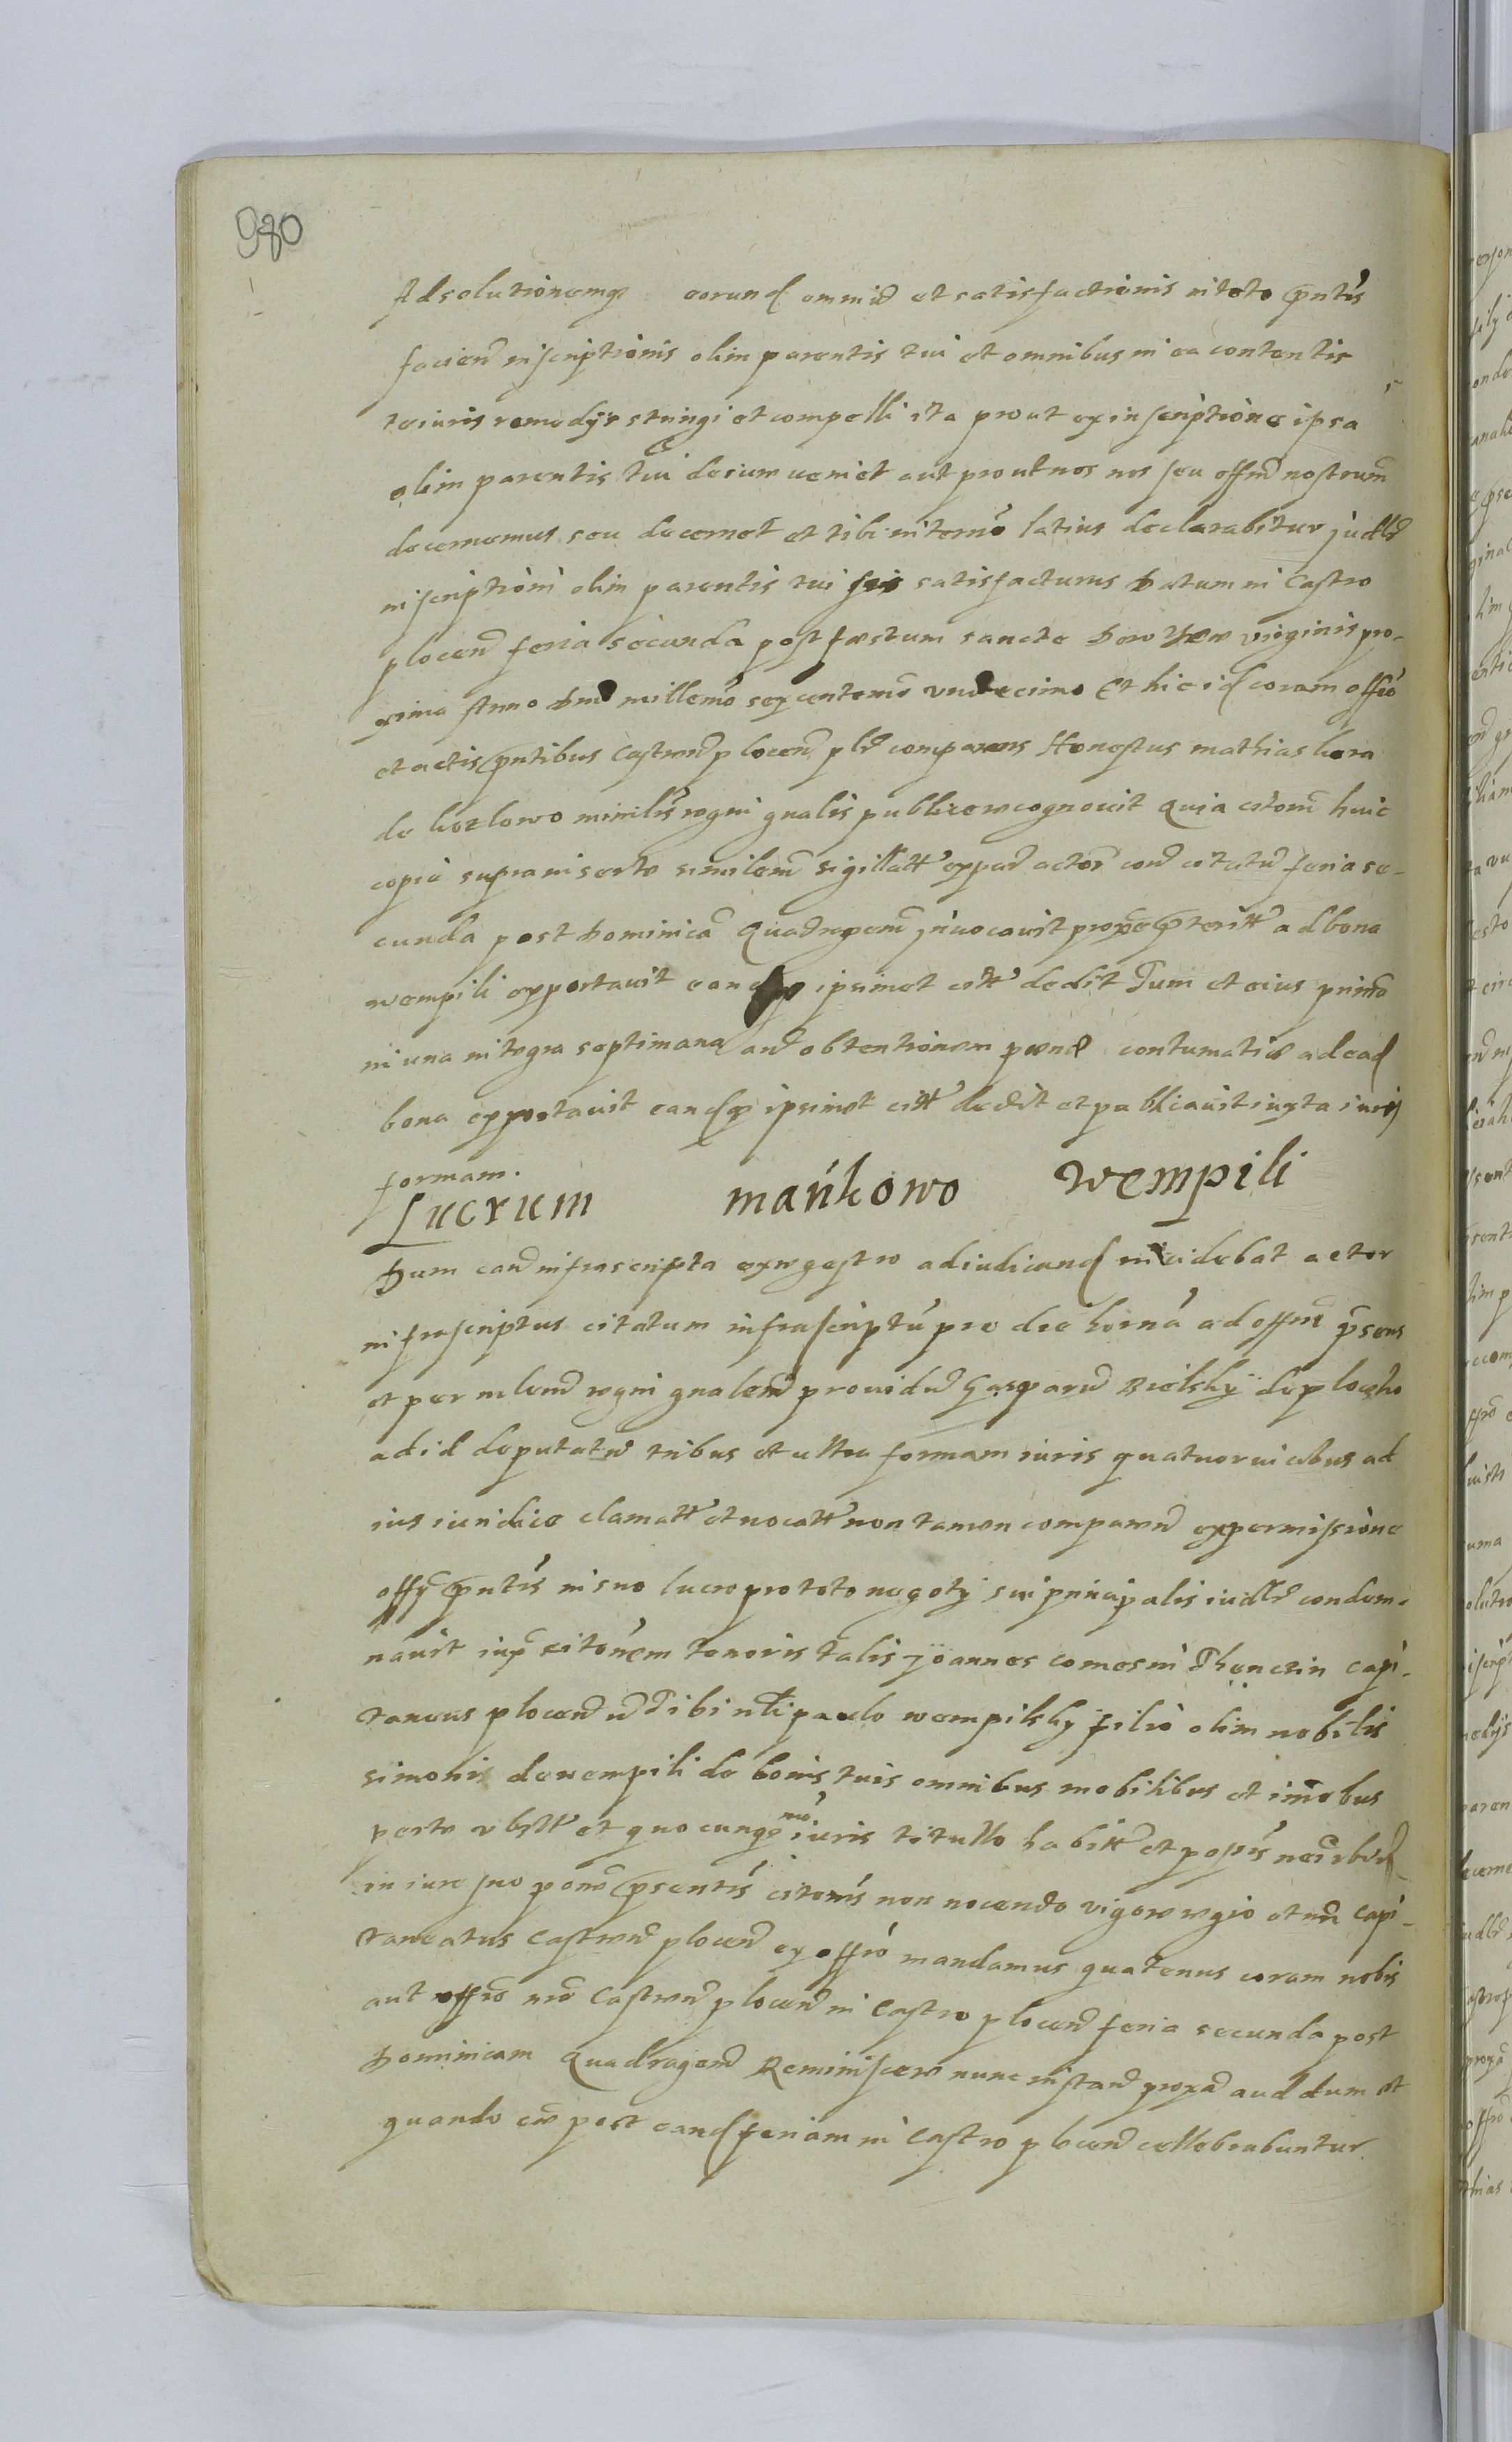 980
Adsolutionemq̃ eorund omniũ et satisfactionis in toto p̃ntis
faciend inscriptionis olim parentis tui et omnibus in ea contentis
te iuris remedijs stringi et compelli ita prout ex inscriptione ipsa
olim parentis tui decium veniet aut prout nos nos seu offm̃ nostrum
decernemus seu decernet et tibi in termo latius declarabitur judlr
inscriptioni olim parentis tui satisfacturus Datum in Castro
plocen feria secunda post festum sancte Dorothee virginis pro-
xima Anno Dni millemo sexcentemo undecimo Et hic id coram offio
et actis p̃ntibus Castren plocen plr comparens Honestus mathias kora
de kozlowo minilis regni gnalis publice recognouit Quia citonem huic
copie suprainserte similem sigillatt ex pard actor cond citatũ feria se-
cunda post Dominicã Quadragem jnuocauit proxe p̃teritt ad bona
wempili exportauit eandq̃ ipsimet citt dedit Tum et eius primo
in una integra septimana and obtentionem pene contumatie ad ead
bona exportauit eandq̃ ipsimet citt dedit et publicauit iuxta iuris
formam.
Lucrum mańkowo wempili
Dum cau infrascripta ex regestro adiudicand incidebat actor
infrascriptus citatum infrascriptu pro die hierna ad offm p̃sens
et per mlem regni gnalem prouidũ Gasparũ Bielsky de plocko
ad id deputatũ tribus et ultra formam iuris quatuor uicibus ad
ius iuridice clamatt et uocatt non tamen comparen ex permissione
offy p̃ntis in suo lucro pro toto negoty sui principalis iudlr condem-
nauit iuxᵃ citonem tenoris talis Joannes comes in Thenczin capi-
taneus plocen Tibi nli paulo wempilsky filio olim nobilis
simonis de wempili de bonis tuis omnibus mobilibus et imobus
perte vbitt et quocunq̃ mo iuris titullo habitt et possis
in iure suo pono p̃sentis citonis non nocendo vigore regio et nr̃i capi-
taneatus Castren plocen ex offio mandamus quatenus coram nobis
aut offio nro Castren plocen in Castro plocen feria secunda post
Dominicam Quadragem Reminiscere nunc instan proxa aud dum et
quando post eand feriam in Castro plocen cellebrabuntur